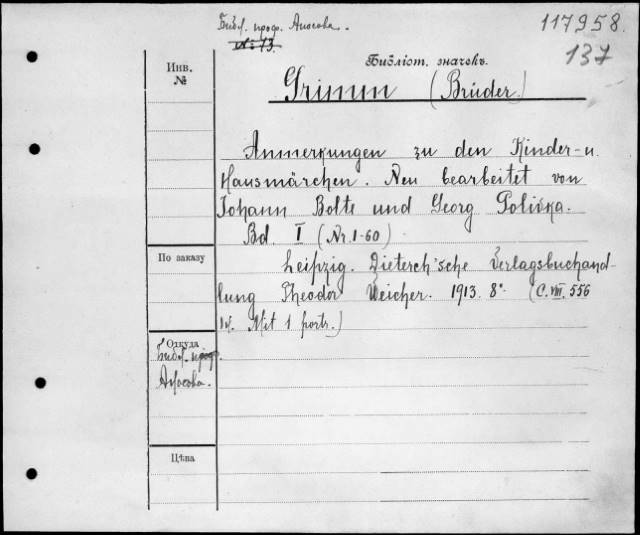 Библ. проф. Аносова.
117958.
№ 73.
137
Инв.
№
Библіот. значекъ.
Grimm (Brüder.)
Anmerkungen zu den Kinder-u.
Hausmärchen. Neu bearbeitet von
Johann Bolte und Georg Polivka.
Bd. I (Nr. 1-60)
По заказу
Leipzig. Dieterch'sche Verlagsbuchand-
lung Theodor Weicher. 1913. 8°. (C. VIII. 556
Mit 1 portr.)
Откуда
Библ. проф.
Аносова.
Цѣна